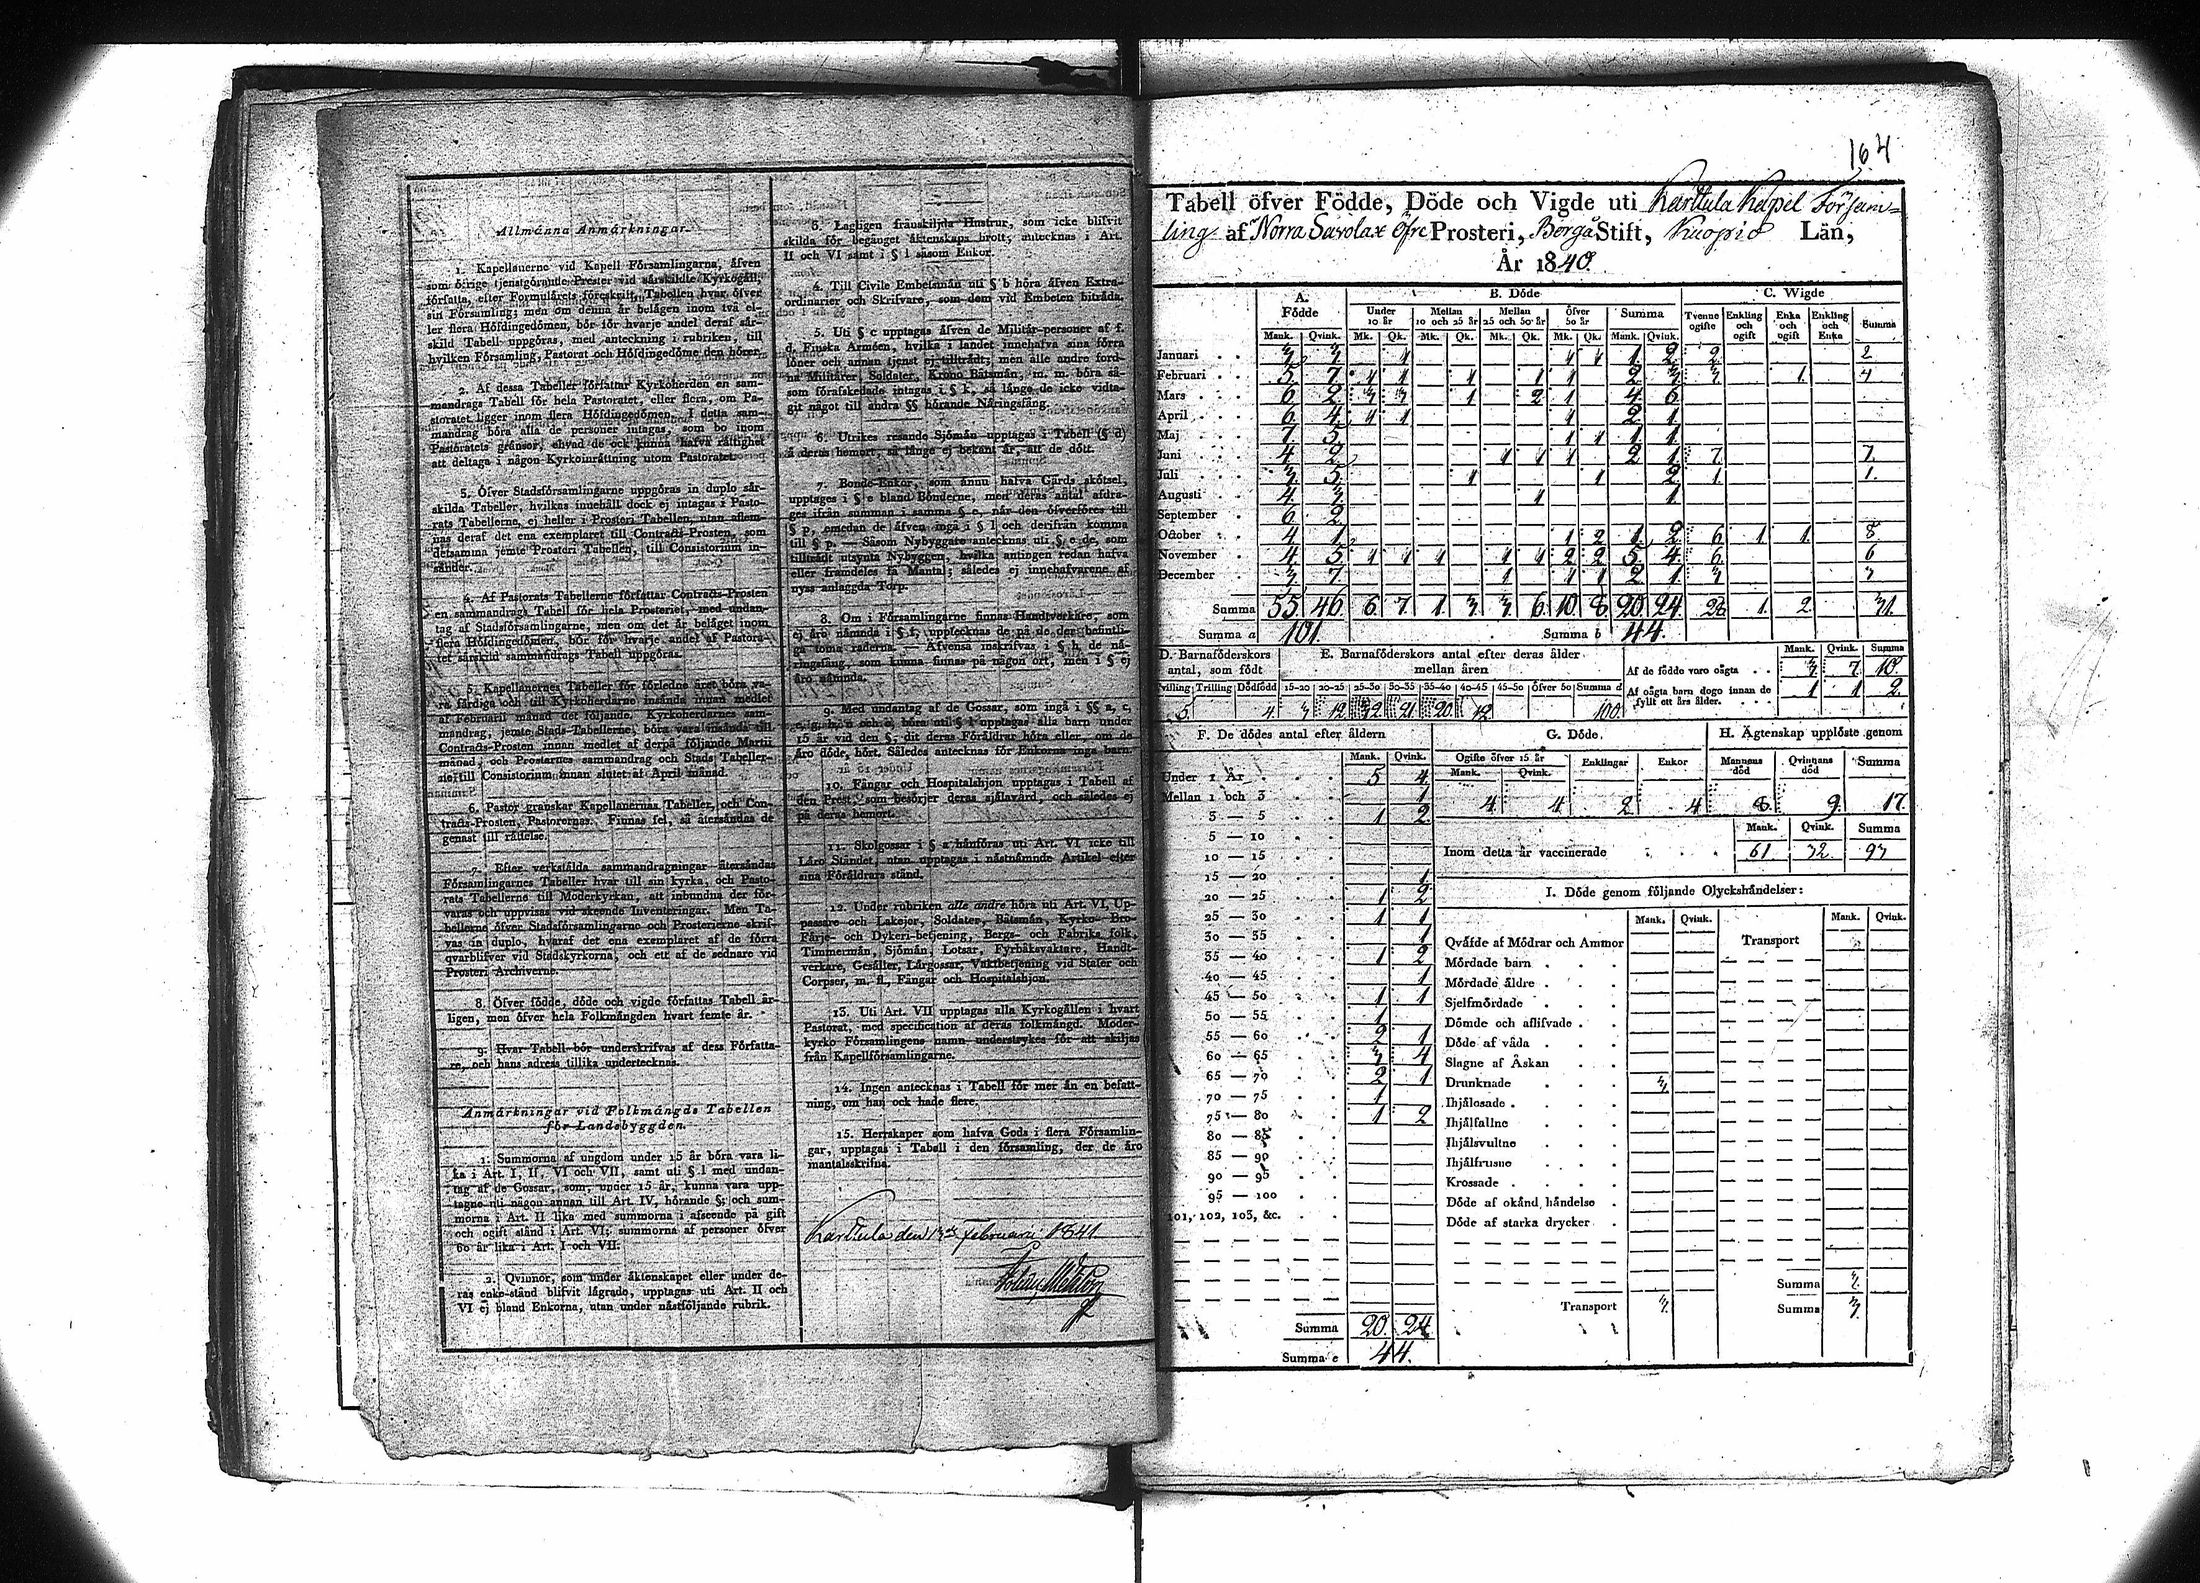 Allmänna Anmärkningar.
1. Kapellanerne vid Kapell Församlingarna, äfven
som öfrige tjenstgörande Prester vid särskildte Kyrkogåll,
författa, efter Formulärets föreskrift, Tabellen hvar öfver
sin Församling; men om denna är belägen inom två el-
ler flera Höfdingedömen, bör för hvarje andel deraf sär-
skild Tabell uppgöras, med anteckning i rubriken, till
hvilken Församling, Pastorat och Höfdingedöme den hörer.
2. Af dessa Tabeller författar Kyrkoherden en sam-
mandrags Tabell för hela Pastoratet, eller flera, om Pa-
storatet ligger inom flera Höfdingedömen. I detta sam-
mandrag böra alla de personer intagas, som bo inom
Pastoratets gränsor, ehvad de ock kunna hafva rättighet
att deltaga i någon Kyrkoinrättning utom Pastoratet.
3. Öfver Stadsförsamlingarne uppgöras in duplo sär-
skilda Tabeller, hvilkas innehåll dock ej intages i Pasto-
rats Tabellerne, ej heller i Prosteri Tabellen, utan aflem-
nas deraf det ena exemplaret till Contracts-Prosten, som
detsamma jemte Prosteri Tabellen, till Consistorium in-
sänder.
4. Af Pastorats Tabellerne författar Contracts-Prosten
en sammandrags Tabell för hela Prosteriet, med undan-
tag af Stadsförsamlingarne, men om det är beläget inom
flera Höfdingedömen, bör för hvarje andel af Pastora-
tet särskild sammandrags Tabell uppgöras.
5. Kapellanernes Tabeller för förledne året böra va-
ra färdiga och till Kyrkoherdarne insände innan medlet
af Februarii månad det följande. Kyrkoherdarnes sam-
mandrag, jemte Stads-Tabellerne, böra vara insände till
Contracts-Prosten innan medlet af derpå följande Martii
månad, och Prostarnes sammandrag och Stads Tabeller-
ne till Consistorium innan slutet af April månad.
6. Pastor granskar Kapellanernas Tabeller, och Con-
tracts-Prosten, Pastorernas. Finnas fel, så återsändas de
genast till rättelse.
7. Efter verkställda sammandragningar återsändas
Församlingarnes Tabeller hvar till sin kyrka, och Pasto-
rats Tabellerne till Moderkyrkan, att inbundna der för-
varas och uppvisas vid skeende Inventeringar. Men Ta-
bellerne öfver Stadsförsamlingarne och Prosterierne skrif-
vas in duplo, hvaraf det ena exemplaret af de förra
qvarblifver vid Stadskyrkorna, och ett af de sednare vid
Prosteri Archiverne.
8. Öfver födde, döde och vigde författas Tabell år-
ligen, men öfver hela Folkmängden hvart femte år.
9. Hvar Tabell bör underskrifvas af dess Författa-
re, och hans adress tillika undertecknas.
Anmärkningar vid Folkmängds Tabellen
för Landsbyggden.
1. Summorna af ungdom under 15 år böra vara li-
ka i Art. I, II, VI och VII, samt uti § l med undan-
tag af de Gossar, som, under 15 år, kunna vara upp-
tagne uti någon annan till Art. IV, hörande §; och sum-
morna i Art. II lika med summorna i afseende på gift
och ogift stånd i Art. VI; summorna af personer öfver
60 år lika i Art. I och VII.
2. Qvinnor, som under äktenskapet eller under de-
ras enke-stånd blifvit lägrade, upptagas uti Art. II och
VI ej bland Enkorna, utan under nästföljande rubrik.
3. Lagligen frånskiljda Hustrur, som icke blifvit
skilda för begånget äktenskaps brott, antecknas i Art.
II och VI samt i § l såsom Enkor.
4. Till Civile Embetsmän uti § b höra äfven Extra-
ordinarier och Skrifvare, som dem vid Embeten biträda.
5. Uti § c upptagas äfven de Militär-personer af f.
d. Finska Armöen, hvilka i landet innehafva sina förra
löner och annan tjenst ej tillträdt; men alle andre ford-
na Militärer, Soldater, Krono Båtsmän, m. m. böra så-
som förafskedade intagas i § k, så länge de icke vidta-
git något till andra §§ hörande Näringsfång.
6. Utrikes resande Sjömän upptagas i Tabell (§ d)
å deras hemort, så länge ej bekant är, att de dött.
7. Bonde-Enkor, som ännu hafva Gårds skötsel,
upptages i § e bland Bönderne, men deras antal afdra-
ges ifrån summan i samma § e, när den öfverföres till
§ p, emedan de äfven ingå i § l och derifrån komma
till § p. — Såsom Nybyggare antecknas uti § e de, som
tillträdt utsynta Nybyggen, hvilka antingen redan hafva
eller framdeles få Mantal; således ej innehafvarene af
nyss anlaggda Torp.
8. Om i Församlingarne finnas Handtverkare, som
ej äro nämnda i § f, upptecknas de på de der befintli-
ga toma raderna. — Äfvenså inskrifvas i § h, de nä-
ringsfång, som kunna finnas på någon ort, men i § ej
äro nämnda.
9. Med undantag af de Gossar, som ingå i §§ a, c,
15 år vid den §, dit deras Föräldrar höra eller, om de
äro döde, hört. Således antecknas för Enkorna inga barn.
10. Fångar och Hospitalshjon upptagas i Tabell af
den Prest, som besörjer deras själavård, och således ej
på deras hemort.
11. Skolgossar i § a hänföras uti Art. VI icke till
Läro Ståndet, utan upptagas i nästnämnde Artikel efter
sina Föräldrars stånd.
12. Under rubriken alle andre höra uti Art. VI, Up-
passare och Lakejer, Soldater, Båtsmän, Kyrko- Bro-
Färje- och Dykeri-betjening, Bergs- och Fabriks folk,
Timmermän, Sjömän, Lotsar, Fyrbåksvaktare, Handt-
verkare, Gesäller, Lärgossar, Vaktbetjening vid Stater och
Corpser, m. fl., Fångar och Hospitalshjon.
13. Uti Art. VII upptagas alla Kyrkogällen i hvart
Pastorat, med specifikation af deras folkmängd. Moder-
kyrko Församlingens namn understrykes för att skiljas
från Kapellförsamlingarne.
14. Ingen antecknas i Tabell för mer än en befatt-
ning, om han ock hade flere.
15. Herrskaper som hafva Gods i flera Församlin-
gar, upptagas i Tabell i den församling, der de äro
mantalsskrifna.
Karttula den 13 Februarii 1841.
164
Tabell öfver Födde, Döde och Vigde uti Karttula Kapel Försam-
ling af Norra Savolax Öfre Prosteri, Borgå Stift, Kuopio Län,
År 1840.
A. Födde B. Döde C. Wigde
Under 10 år Mellan 10 och 25 år Mellan 25 och 50 år Öfver 50 år Summa Tvenne ogifte Enkling och ogift Enka och ogift Enkling och Enka Summa
Mank. Qvink. Mk. Qk. Mk. Qk. Mk. Qk. Mk. Qk. Mank. Qvink.
Januari 3 3 1 1 1 1 2 2 2
Februari 5 7 1 1 1 1 1 2 3 3 1 4
Mars 6 2 3 3 1 2 1 4 6
April 6 4 1 1 1 2 1
Maj 7 5 1 1 1 1
Juni 4 2 1 1 1 2 1 7 7
Juli 3 5 1 1 2 1 1
Augusti 4 3 1 1
September 6 2
October 4 1 1 2 1 2 6 1 1 8
November 4 5 1 1 1 1 1 2 2 5 4 6 6
December 3 7 1 1 1 2 1 3 3
Summa 55 46 6 7 1 3 3 6 10 8 20 24 28 1 2 31
Summa a 101. Summa b 44.
D. Barnaföderskors antal, som födt
E. Barnaföderskors antal efter deras ålder mellan åren
Tvilling Trilling Dödfödd 15-20 20-25 25-30 30-35 35-40 40-45 45-50 Öfver 50 Summa d
5 4 3 12 32 21 20 12 100
Mank. Qvink. Summa
Af de födde voro oägta 3 7 10
Af oägta barn dogo innan de fyllt ett års ålder. 1 1 2
F. De dödes antal efter åldern
Mank. Qvink.
Under 1 År 5 4
Mellan 1 och 3 1
3 — 5 1 2
5 — 10
10 — 15
15 — 20 1
20 — 25 1 2
25 — 30 1 1
30 — 35 1
35 — 40 1 2
40 — 45 1
45 — 50 1 1
50 — 55 1
55 — 60 2 1
60 — 65 3 4
65 — 70 2 1
70 — 75 1
75 — 80 1 2
80 — 85
85 — 90
90 — 95
95 — 100
101, 102, 103, &c.
Summa 20 24
Summa e 44.
G. Döde.
Ogifte öfver 15 år Enklingar Enkor
Mank. Qvink.
4 4 2 4
H. Ägtenskap upplöste genom
Mannens död Qvinnans död Summa
8 9 17
Mank. Qvink. Summa
Inom detta år vaccinerade 61 32 93
I. Döde genom följande Olyckshändelser:
Mank. Qvink. Transport Mank. Qvink.
Qväfde af Mödrar och Ammor
Mördade barn
Mördade äldre
Sjelfmördade
Dömde och aflifvade
Döde af våda
Slagne af Åskan
Drunknade 3
Ihjälosade
Ihjälfallne
Ihjälsvultne
Ihjälfrusne
Krossade
Döde af okänd händelse
Döde af starka drycker
Summa 3
Transport 3 Summa 3